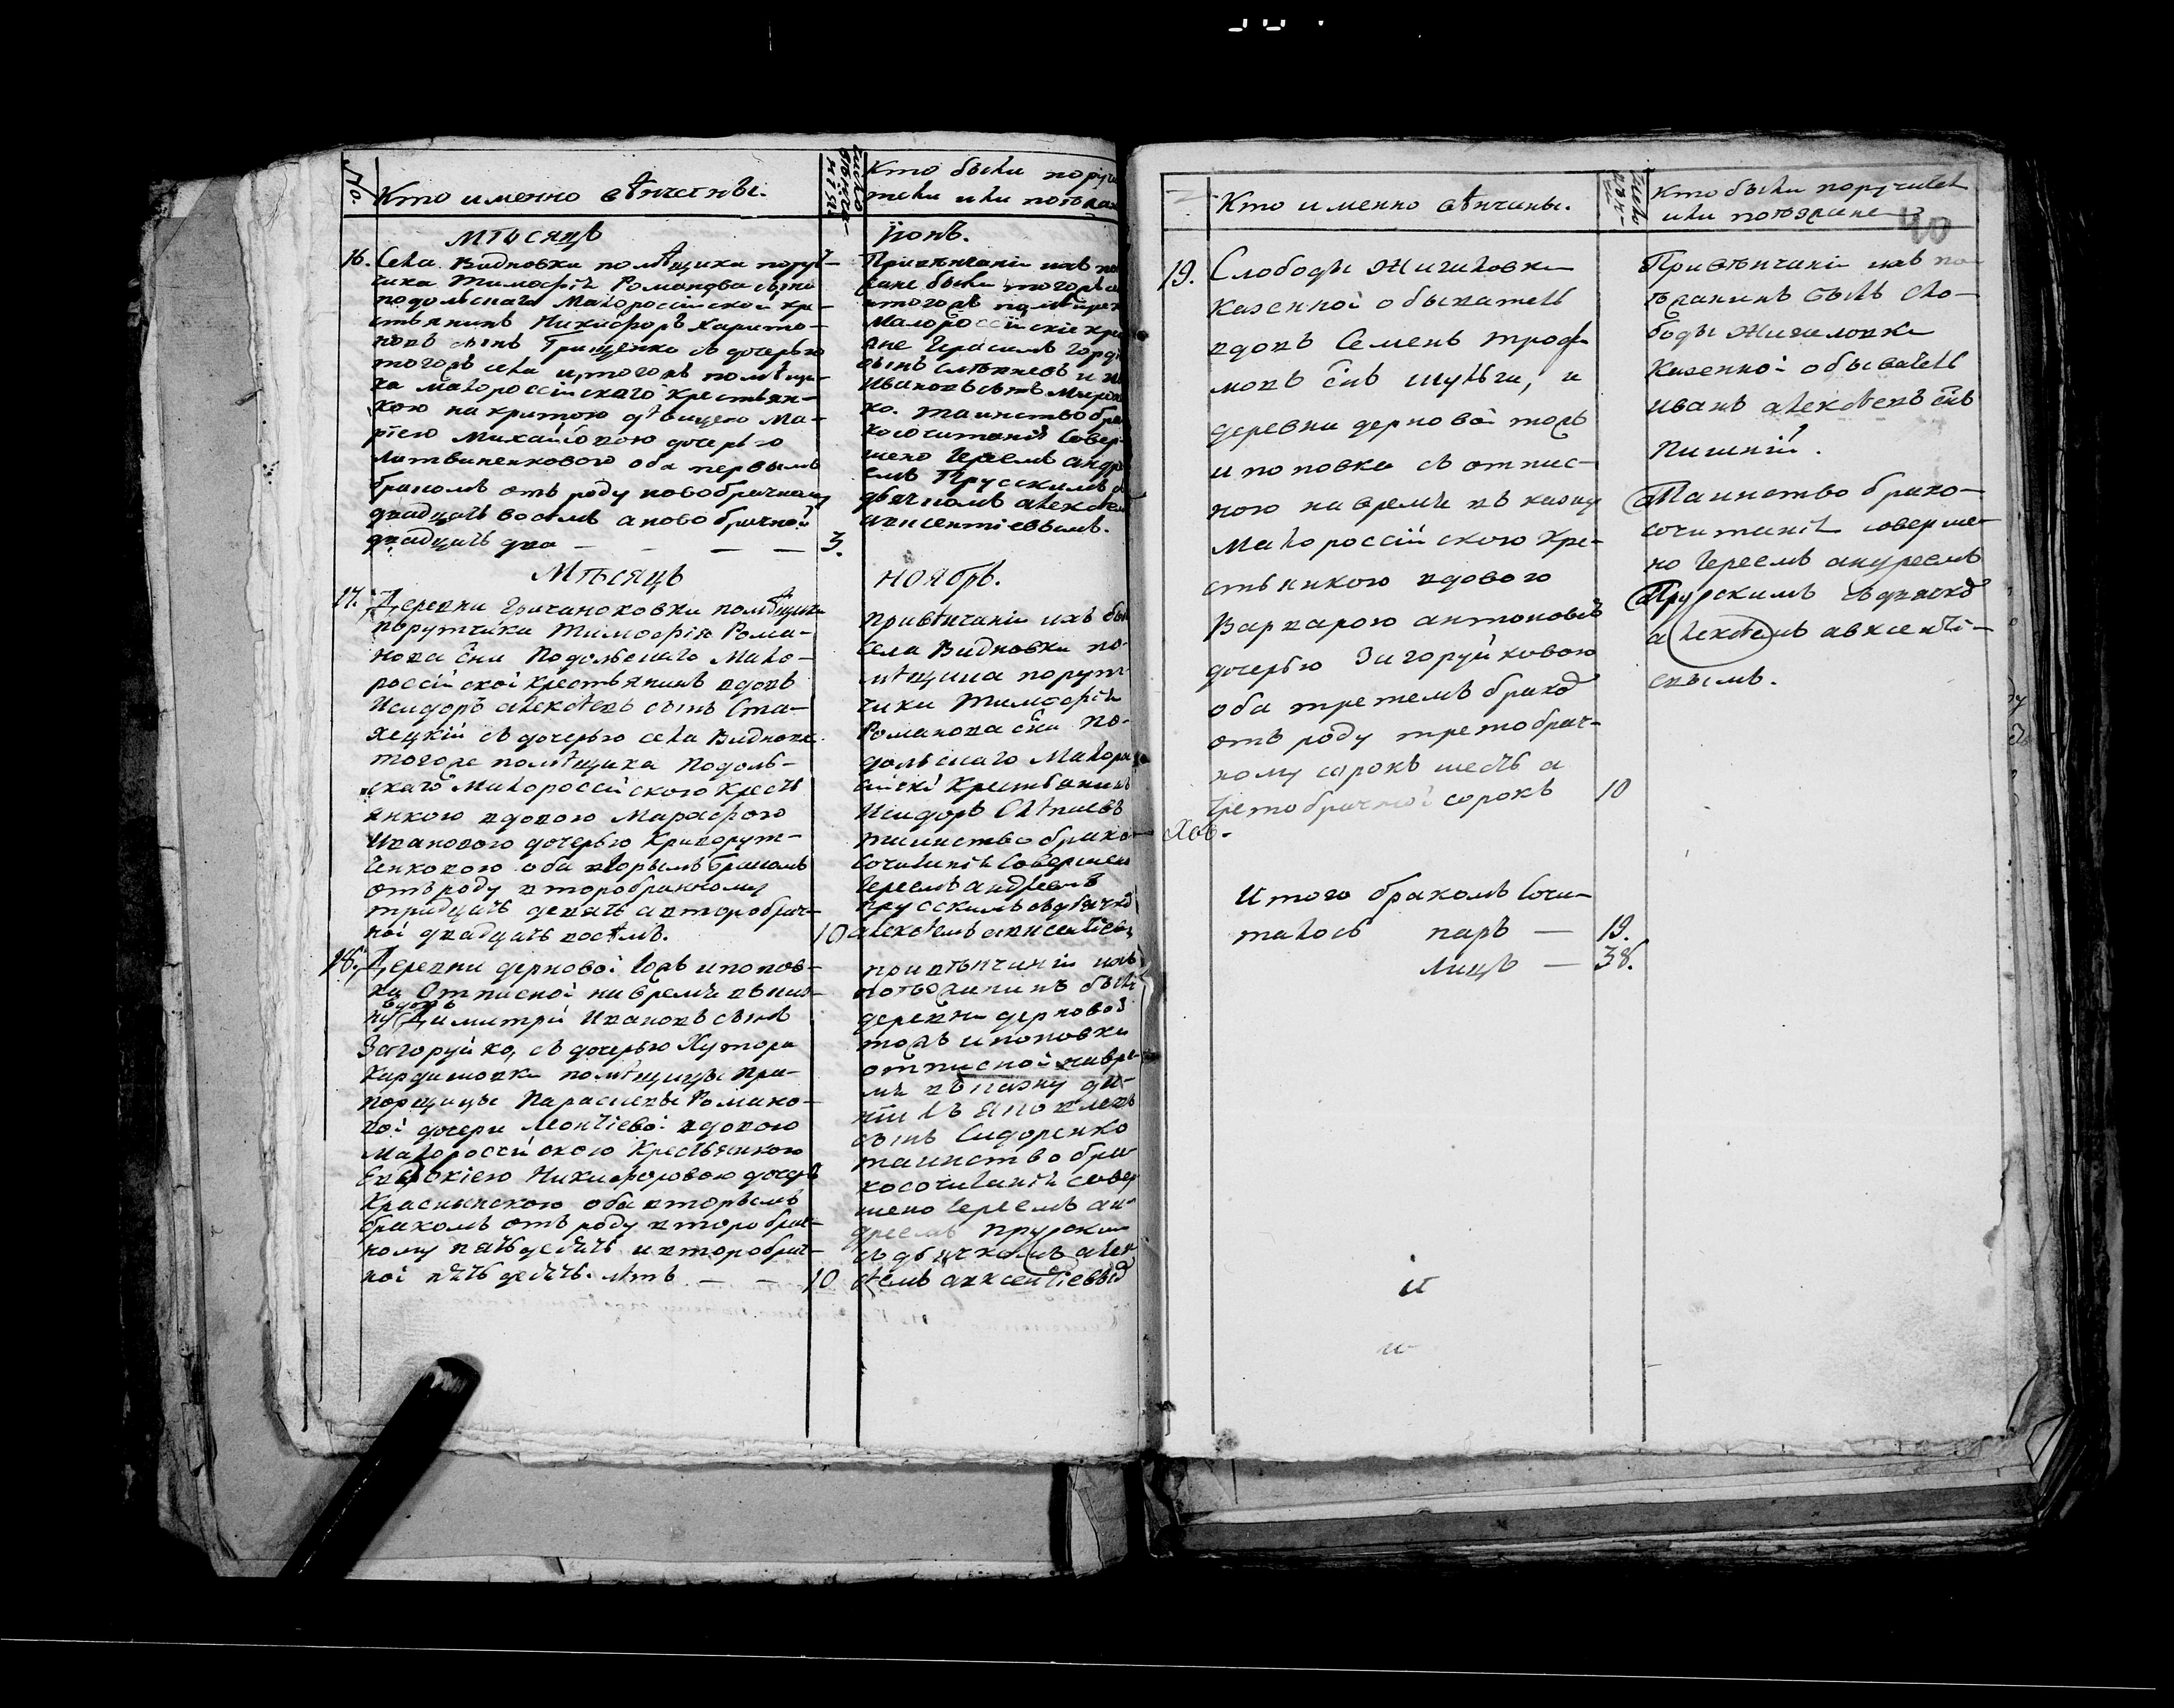 №
Кто именно вѣнчаны.
число вѣнча-нїя
Кто были поручи
тели или поѣзжа
мѣсяцъ
іюнь.
16. Села Видновки помѣщика порут-
чика Тимофѣя Романова сына
подольскаго Малороссійской кре-
стьянинъ Никифоръ Харито-
новъ сынъ Грищенко съ дочерью
тогожъ села и тогожъ помѣщи-
ка малороссійскаго крестьян-
кою на критою дѣвицею Ма-
рїею Михайловою дочерью
Литвиненковою оба первымъ
бракомъ отъ роду новобрачному
двадцать восемъ а новобрачной
двадцать два — — — — 3.
Привѣнчанїи ихъ по
зжане были тогожъ
и тогожъ помѣщика
Малороссїйскїе кре
яне Герасимъ Горд
сынъ и
Ивановъ сынъ Мирон
ко. таинство бра
косочитанїя совер-
шено Іереемъ андре
емъ Прусскимъ
дьячкомъ алексѣем
авксентїевымъ.
Мѣсяцъ
ноябрь.
17. Деревни Гричановки помѣщика
порутчика Тимофѣя Рома-
нова сна Подольскаго Мало-
россїйской крестьянинъ вдовъ
Исидоръ алексѣевъ сынъ Ста-
хецкїй съ дочерью села Видновк
тогоже помѣщика Подоль-
скаго Малороссїйскою кресть
янкою вдовою Марфою
Ивановою дочерью Криворут-
ченковою оба вторымъ бракомъ
отъ роду второбрачному
тридцать девять а второбрач-
ной двадцать восѣмь. 10
привѣнчанїи ихъ был
села Видновки по-
мѣщика порут-
чика Тимофѣя
Романова сна По-
дольскаго Малоро
сїйскї Крестьянинъ
Исидоръ
таинство брако-
сочитанїя Совершен
Іереемъ андреемъ
прусскимъ съ дьячко
алексѣемъ авксентїевы
18. Деревни дерновой тожъ и попов-
ка Отписной на время въ каз-
ну вдовъ Димитрїй Ивановъ сынъ
Загоруйко, съ дочерью Хутора
Кардашовки помѣщицы пра-
порщицы Параскевы Романо-
вой дочери Леонтїевой вдовою
Малороссїйскою Крестьянкою
Евдокїею Никифоровою дочерь
Краснянскою оба вторымъ
бракомъ отъ роду второбрач-
ному пятьдесятъ и второбрач-
ной пятьдесятъ. лѣтъ — — 10
привѣнчанїи ихъ
поѣзжанинъ былъ
деревни дерновой
тожъ и поповка
отписной на вре-
мя въ казну да-
нїилъ Яковлевъ
сынъ Сидоренко
таинство бра-
косочитанїя совер
шено Іереемъ ан-
дреемъ прускимъ
съ дьячкомъ алек
сѣемъ авксентїевымъ
Кто именно вѣнчаны.
Кто были поручител
или поѣзжане
40
19. Слободы Жигиловки
казенной обыватель
вдовъ Семенъ трофи
мовъ снъ шульга, и
деревни дерновой тожъ
и поповка съ отпис-
ною на время въ казну
Малороссїйскою кре-
стьянкою вдовою
Варварою антоновою
дочерью Загоруйковою
оба третемъ бракомъ
отъ роду третобрач-
ному сорокъ шесть а
третобрачной сорокъ 10
Привѣнчанїи ихъ по
ѣзжанинъ былъ сло-
боды Жигиловки
казенной обыватель
иванъ алексѣевъ снъ
Пишнїй.
Таинство брако-
сочитанїя соверше-
но Іереемъ андреемъ
Прускимъ съ дьячко
алексѣемъ авксентї-
евымъ.
Итого бракомъ сочи-
талось паръ — 19.
лицъ — 38.